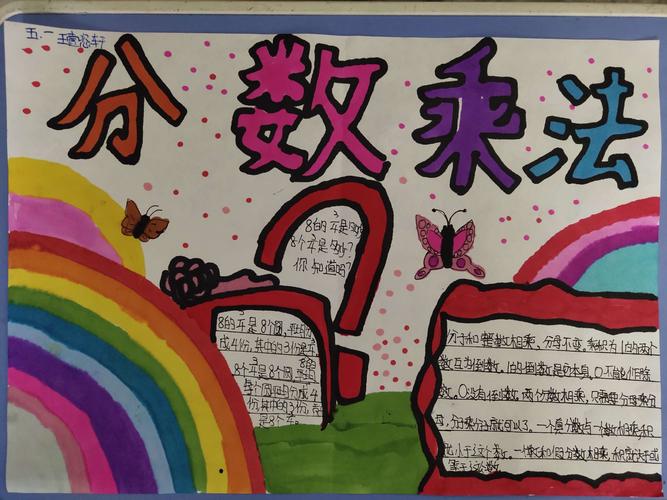 五.一
分数乘法
8的3/4是多少?
8个3/4是多少?
你知道吗?
8的3/4是8个圆,平均
成4份,其中的3份是
8个3/4是8个圆,
每个圆平均分成4
份,其中的3份,
是8个3/4。
分子和整数相乘,分母不变。乘积为1的两个
数互为倒数。1的倒数是它本身,0不能作除
数。0没有倒数。两个分数相乘,只需要分母乘分
母,分子乘分子就可以了。一个真分数与一个数相乘,积
比小于这个数。一个数和假分数相乘,积就大于或
等于这个数